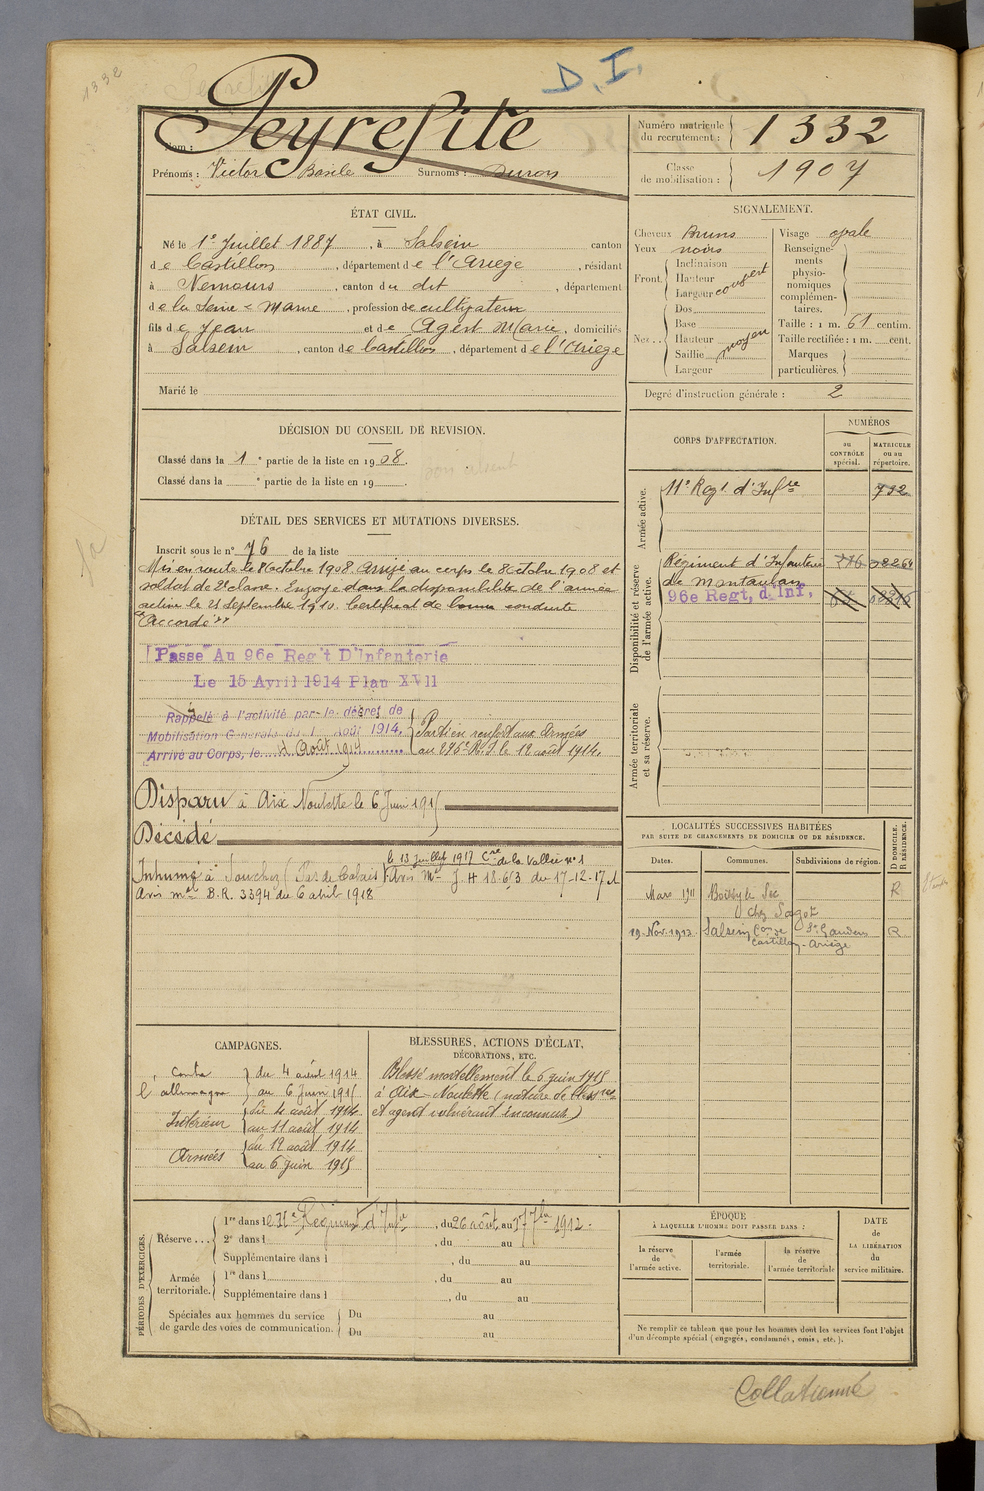 1332
D.I.
Nom : Peyrefite
Prénoms : Victor Basile Surnoms : Duron
Numéro matricule du recrutement : 1332
Classe de mobilisation : 1907
ÉTAT CIVIL.
Né le 1er Juillet 1887, à Salsein canton
de Castillon, département de l'Ariège, résidant
à Nemours, canton du dit, département
de la Seine & Marne, profession de cultivateur
fils de Jean et de Agert Marie, domiciliés
à Salsein, canton de Castillon, département de l'Ariège
Marié le
SIGNALEMENT.
Cheveux Bruns
Yeux noirs
Front. Inclinaison
Hauteur
Largeur couvert
Nez.. Dos
Base
Hauteur
Saillie moyen
Largeur
Visage ovale
Renseignements physionomiques complémentaires.
Taille : 1 m. 61 centim.
Taille rectifiée : 1 m. cent.
Marques particulières.
Degré d'instruction générale : 2
DÉCISION DU CONSEIL DE REVISION.
Classé dans la 1e partie de la liste en 1908.
Classé dans la e partie de la liste en 19 .
bon absent
DÉTAIL DES SERVICES ET MUTATIONS DIVERSES.
Inscrit sous le n° 76 de la liste
Mis en route le 8 Octobre 1908. Arrivé au corps le 8 octobre 1908 et
soldat de 2e classe. Envoyé dans la disponibilité de l'armée
active le 25 septembre 1910. Certificat de bonne conduite
"Accordé"
Passé Au 96e Reg't D'Infanterie
Le 15 Avril 1914 Plan XVII
Rappelé à l'activité par le décret de
Mobilisation Générale du 1 Août 1914.
Arrivé au Corps, le 4 Août 1914
Parti en renfort aux Armées
au 296e R.I. le 12 août 1914.
Disparu à Aix Noulette le 6 Juin 1915
Décédé
le 13 Juillet 1917 Cre de la Vallée n° 1
Inhumé à Souchez (Pas de Calais) Avis Mel J.H 18.613 du 17-12-17
Avis mel B.R. 3394 du 6 avril 1918
CORPS D'AFFECTATION.
NUMÉROS
au CONTRÔLE spécial.
MATRICULE ou au répertoire.
Armée active.
11e Regt d'Infre 732
Disponibilité et réserve de l'armée active.
Régiment d'Infanterie
de Montauban
96e Regt, d'Inf.
Armée territoriale et sa réserve.
LOCALITÉS SUCCESSIVES HABITÉES
PAR SUITE DE CHANGEMENTS DE DOMICILE OU DE RÉSIDENCE.
Dates. Communes. Subdivisions de région. D DOMICILE. R RÉSIDENCE.
Mars 1911 Boissy le Sec R
chez Sagot
19 Nov. 1912 Salsein Con de St Gaudens R
Castillon - Ariège
CAMPAGNES.
Contre du 4 août 1914
l'allemagne au 6 Juin 1915
Intérieur du 4 août 1914
au 11 août 1914
Armées du 12 août 1914
au 6 juin 1915
BLESSURES, ACTIONS D'ÉCLAT,
DÉCORATIONS, ETC.
Blessé mortellement le 6 juin 1915
à Aix-Noulette (nature de blessres
et agent vulnérant inconnus)
PÉRIODES D'EXERCICES.
Réserve... 1re dans le 11e Régiment d'Infie, du 26 août au 17 7bre 1912.
2e dans l , du au
Supplémentaire dans l , du au
Armée territoriale. 1re dans l , du au
Supplémentaire dans l , du au
Spéciales aux hommes du service de garde des voies de communication. Du au
Du au
ÉPOQUE
À LAQUELLE L'HOMME DOIT PASSER DANS :
la réserve de l'armée active.
l'armée territoriale.
la réserve de l'armée territoriale
DATE de LA LIBÉRATION du service militaire.
Ne remplir ce tableau que pour les hommes dont les services font l'objet
d'un décompte spécial (engagés, condamnés, omis, etc.).
Collationné